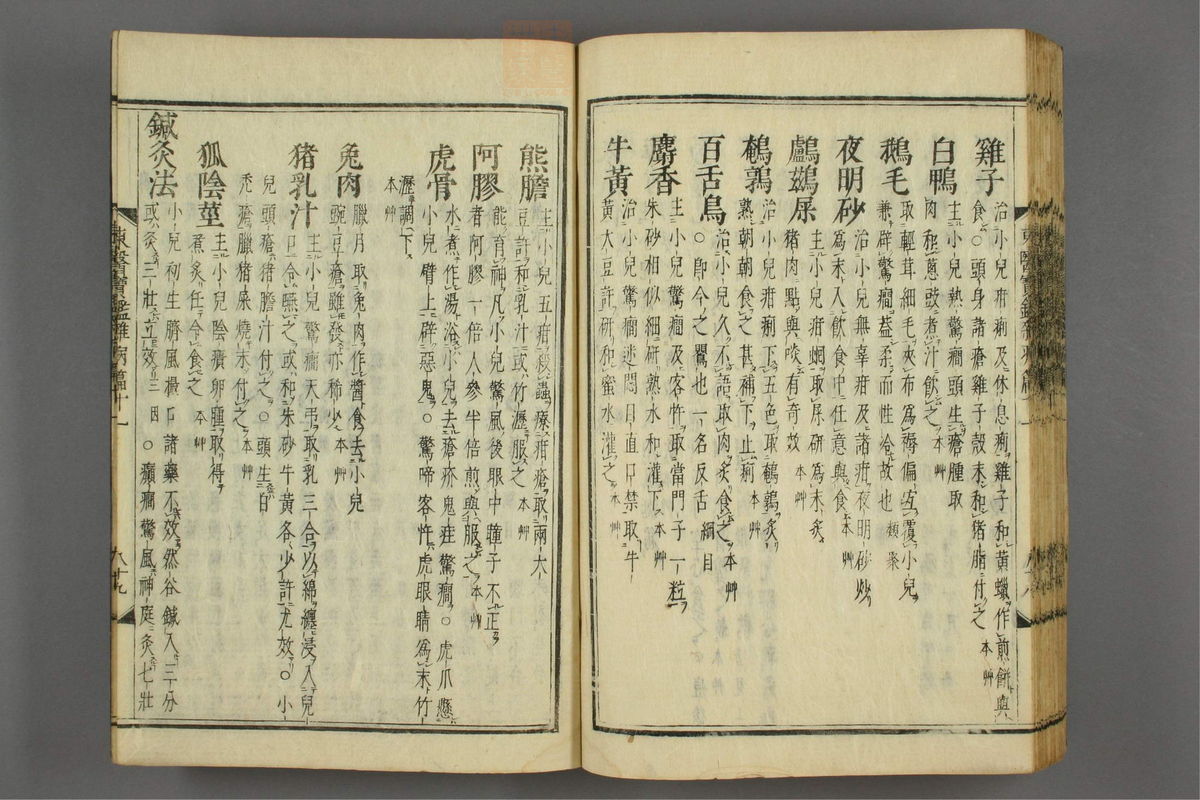 雞子 治小兒疳及休息痢雞子和黃蠟作煎餅與
食○頭身諸瘡雞子殼末和猪脂付之 本艸
白鴨 主小兒熱驚癇頭生瘡腫取
肉和葱豉煮汁飮之 本艸
鵝毛 取輕茸細毛夾布爲褥偏宜覆小兒
兼辟驚癎葢柔而性冷故也 類聚
夜明砂 治小兒無辜疳及諸疳夜明砂炒
爲末入飮食中任意與食 本艸
鸕鷀屎 主小兒疳蛔取屎硏爲末炙
猪肉點與啖有奇效 本艸
鵪鶉 治小兒疳痢下五色取鵪鶉炙
熟朝朝食之甚補下止痢 本艸
百舌鳥 治小兒久不語取肉炙食之 本艸
○卽今之鸎也一名反舌 綱目
麝香 主小兒驚癎及客忤取當門子一粒
朱砂相似細硏熟水和灌下 本艸
牛黃 治小兒驚癎迷悶目直口禁取牛
黃大豆許硏和蜜水灌之 本艸
熊膽 主小兒五疳殺蟲療疳瘡取兩大
豆許和乳汁或竹瀝服之 本艸
阿膠 能育神凡小兒驚風後眼中瞳子不正
者阿膠一倍人參半倍煎與服之 本艸
虎骨 水煮作湯浴小兒去瘡疥鬼疰驚癎○虎爪懸
小兒臂上辟惡鬼○驚啼客忤虎眼睛爲末竹
瀝調下 本艸
兔肉 臘月取兔肉作醬食去小兒
豌豆瘡雖發亦稀少 本艸
猪乳汁 主小兒驚癎天弔取乳三合以綿纏浸入兒
口令㗘之或和朱砂牛黃各少許尤效○小
兒頭瘡猪膽汁付之○頭生白
禿瘡臘猪屎燒末付之 本艸
狐陰莖 主小兒陰㿉卵腫取得
煮炙任令食之 本艸
鍼灸法 小兒初生臍風撮口諸藥不效然谷鍼入三分
或灸三壯立效 三因 ○癲癎驚風神庭灸七壯
東醫寶鑑雜病篇十一
八十九